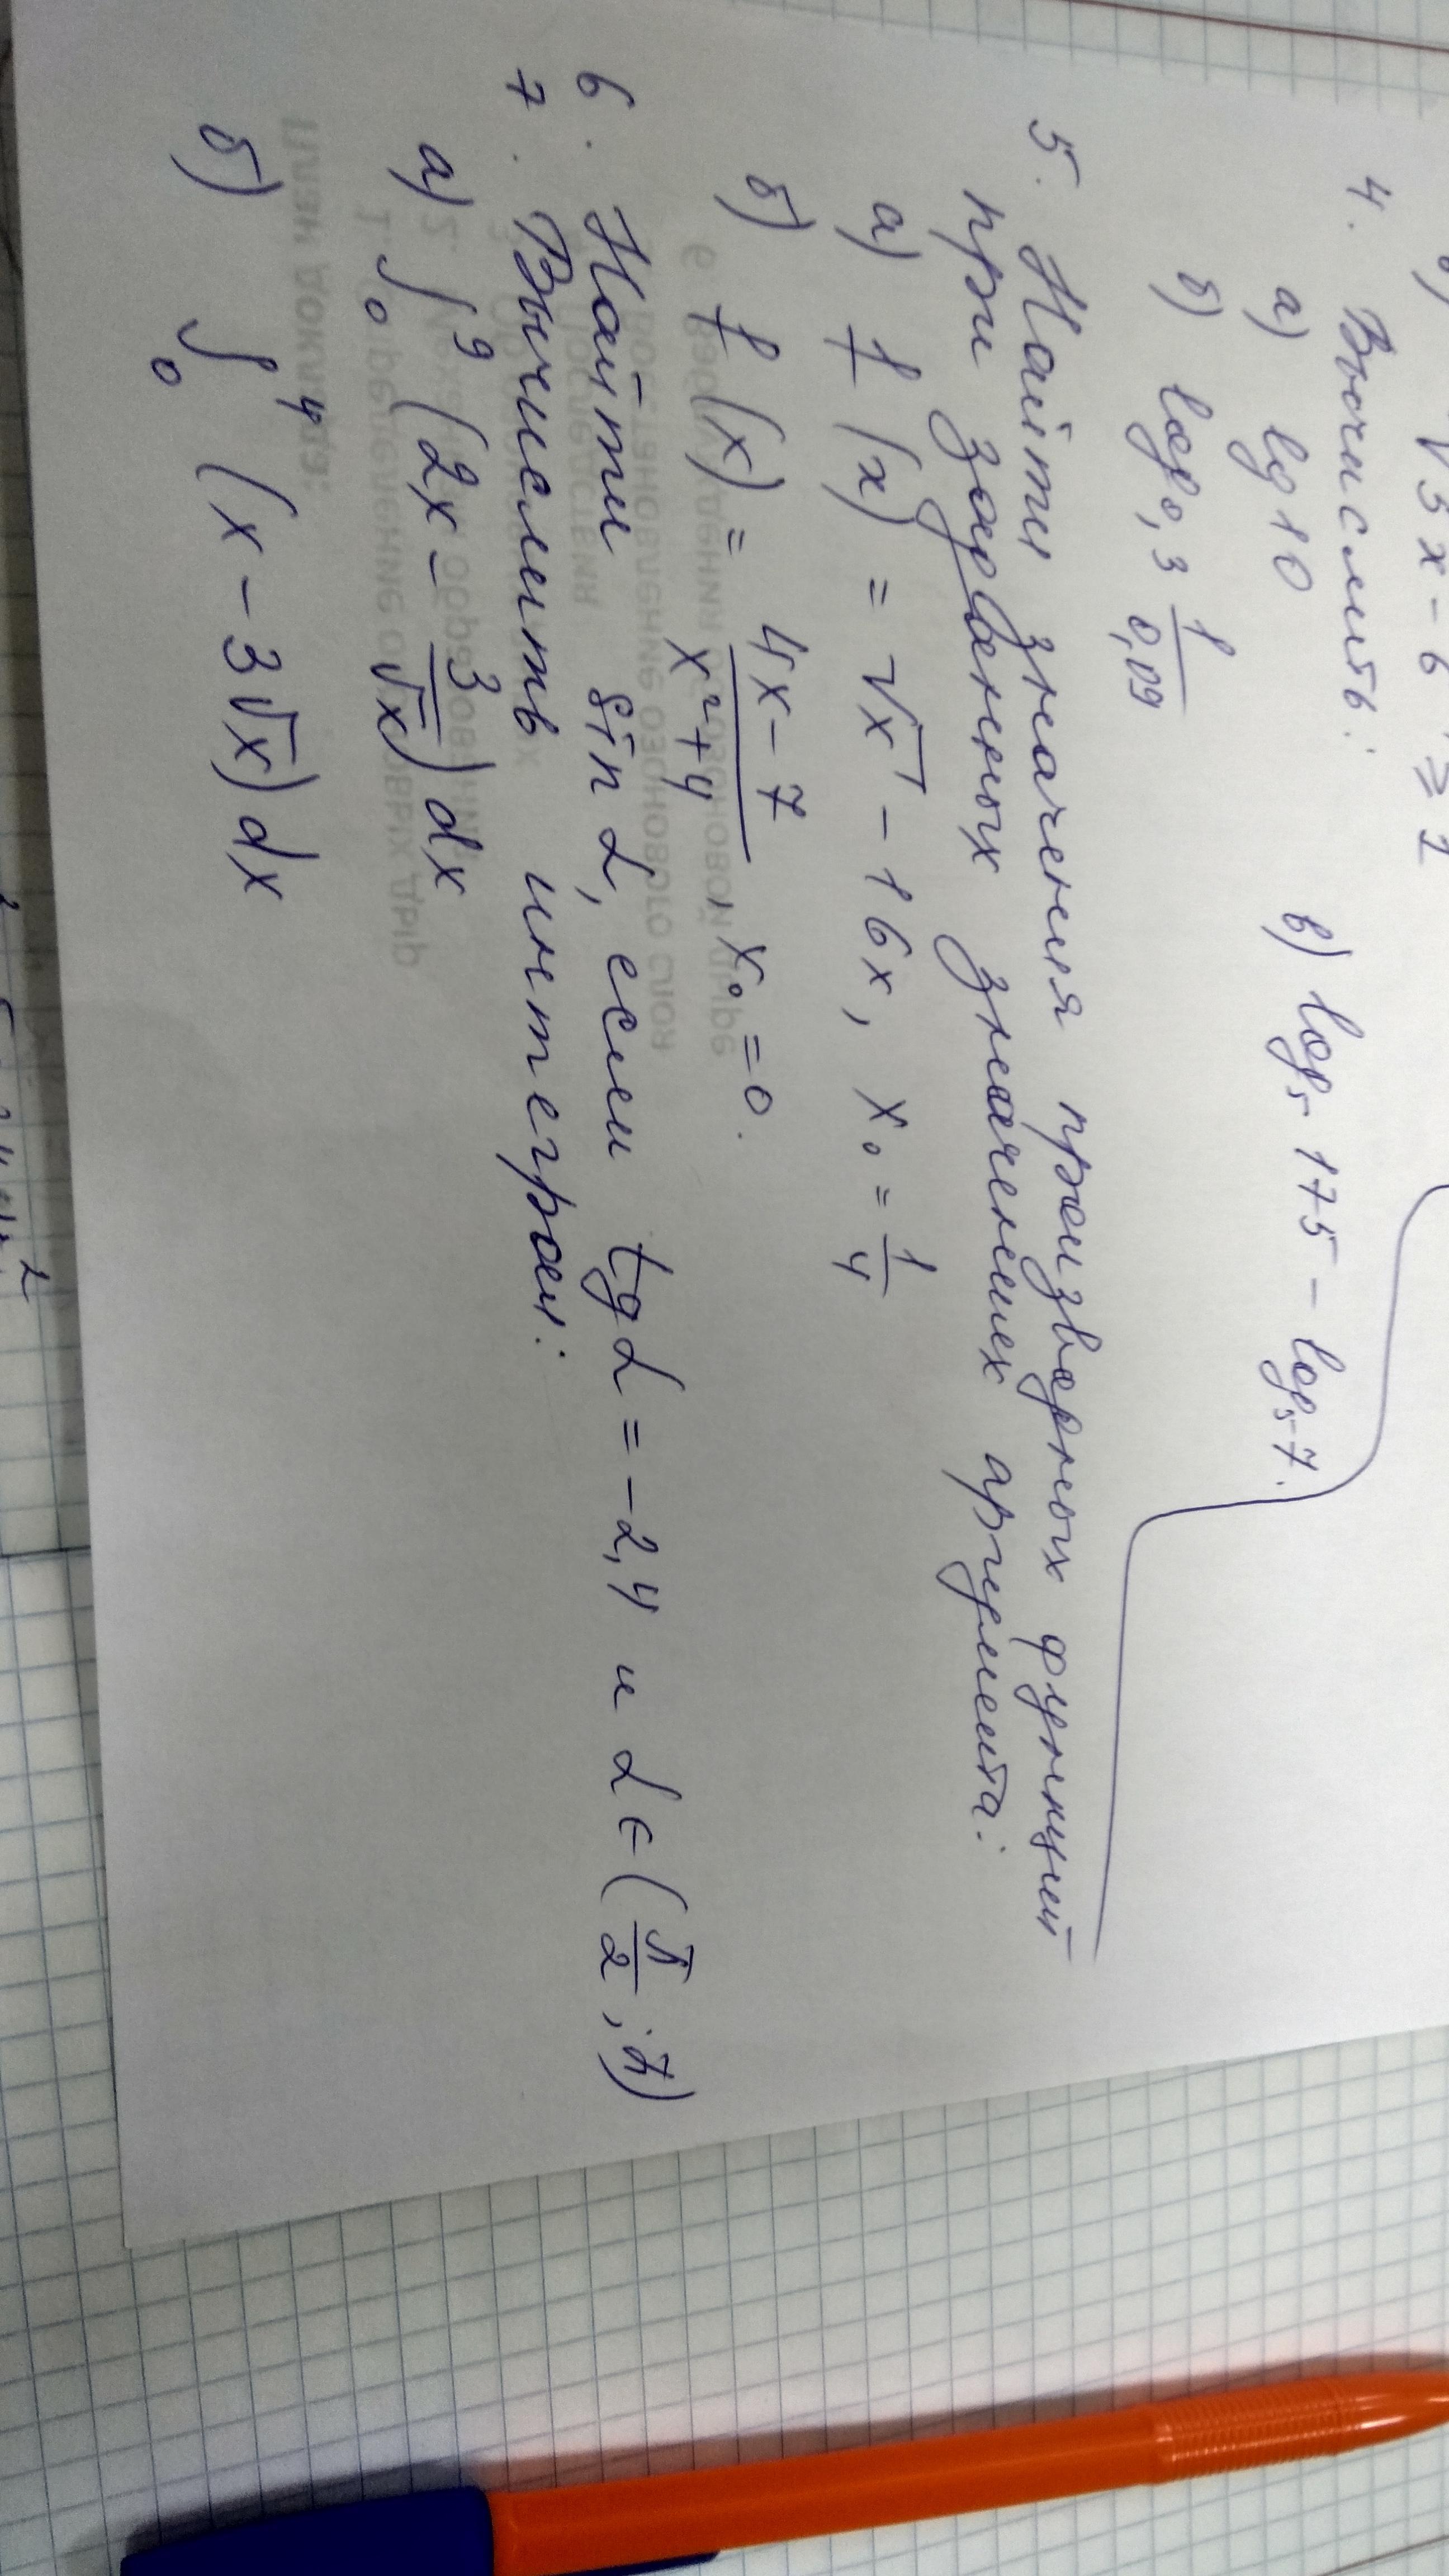 √3x-6 ≥ 1
4. Вычислить:
а) lg 10
в) log₅ 175 - log₅ 7.
б) log₀,₃ 1/0,09
5. Найти значения производных функций
при заданных значениях аргумента:
а) f(x) = √x - 16x, x₀ = 1/4
б) f(x) = 4x-7/x²+4, x₀ = 0.
6. Найти sin α, если tg α = -2,4 и α ∈ (π/2; π)
7. Вычислить интеграл:
а) ∫₀⁹ (2x - 3/√x) dx
б) ∫₀⁴ (x - 3√x) dx
План доклада: